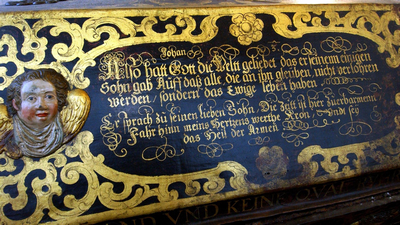 Johan: 3.
Also hatt Gott die Welt geliebet das er seinem einigen
Sohn gab Auf daß alle die an ihn gleuben, nicht verlohren
werden, sondern das Ewige leben haben
Er sprach zu seinen lieben Sohn Die Zeit ist hier zuerbarmen
Fahr hinn meins Hertzens werthe Kron, Undt sey
das Heil der Armen
UND KEINE QUAL